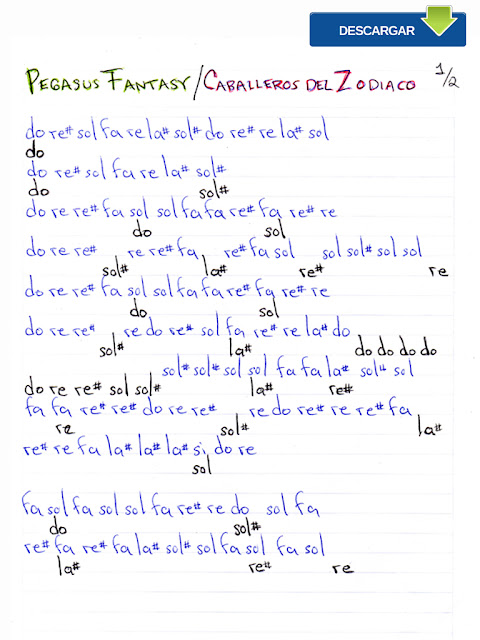 DESCARGAR
PEGASUS FANTASY/CABALLEROS DEL ZODIACO 1/2
do re# sol fa re la# sol# do re# re la# sol
do
do re# sol fa re la# sol#
do sol#
do re re# fa sol sol fa fa re# fa re# re
do sol
do re re# re re# fa re# fa sol sol sol# sol sol
sol# la# re# re
do re re# fa sol sol fa fa re# fa re# re
do sol
do re re# re do re# sol fa re# re la# do
sol# la# do do do do
sol# sol# sol sol fa fa la# sol# sol
do re re# sol sol# la# re#
fa fa re# re# do re re# re do re# re re# fa
re sol# la#
re# re fa la# la# la# si do re
sol
fa sol fa sol sol fa re# re do sol fa
do sol#
re# fa re# fa la# sol# sol fa sol fa sol
la# re# re